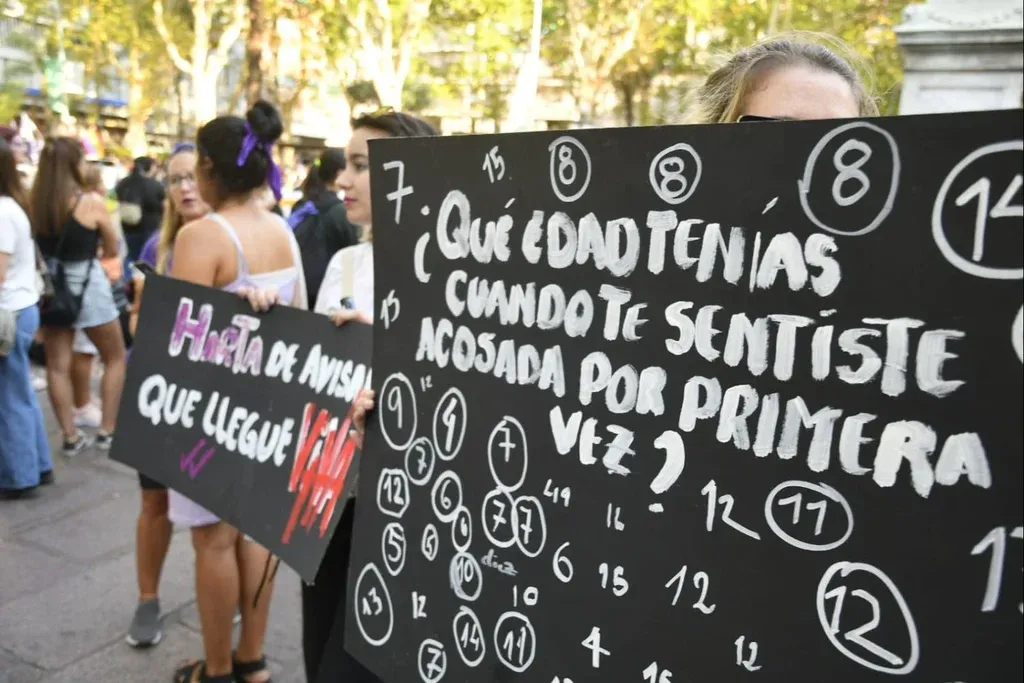 HARTA DE AVISAR
QUE LLEGUE VIVA
7 15 8 8 8 14
¿QUÉ EDAD TENÍAS
CUANDO TE SENTISTE
15
ACOSADA POR PRIMERA
VEZ?
9 12 9 7
7
12 6 7 7 49 16 12 11
5 6 6
10 diez 6 15 12 12
13 12 10
14 11 4 12
7 15